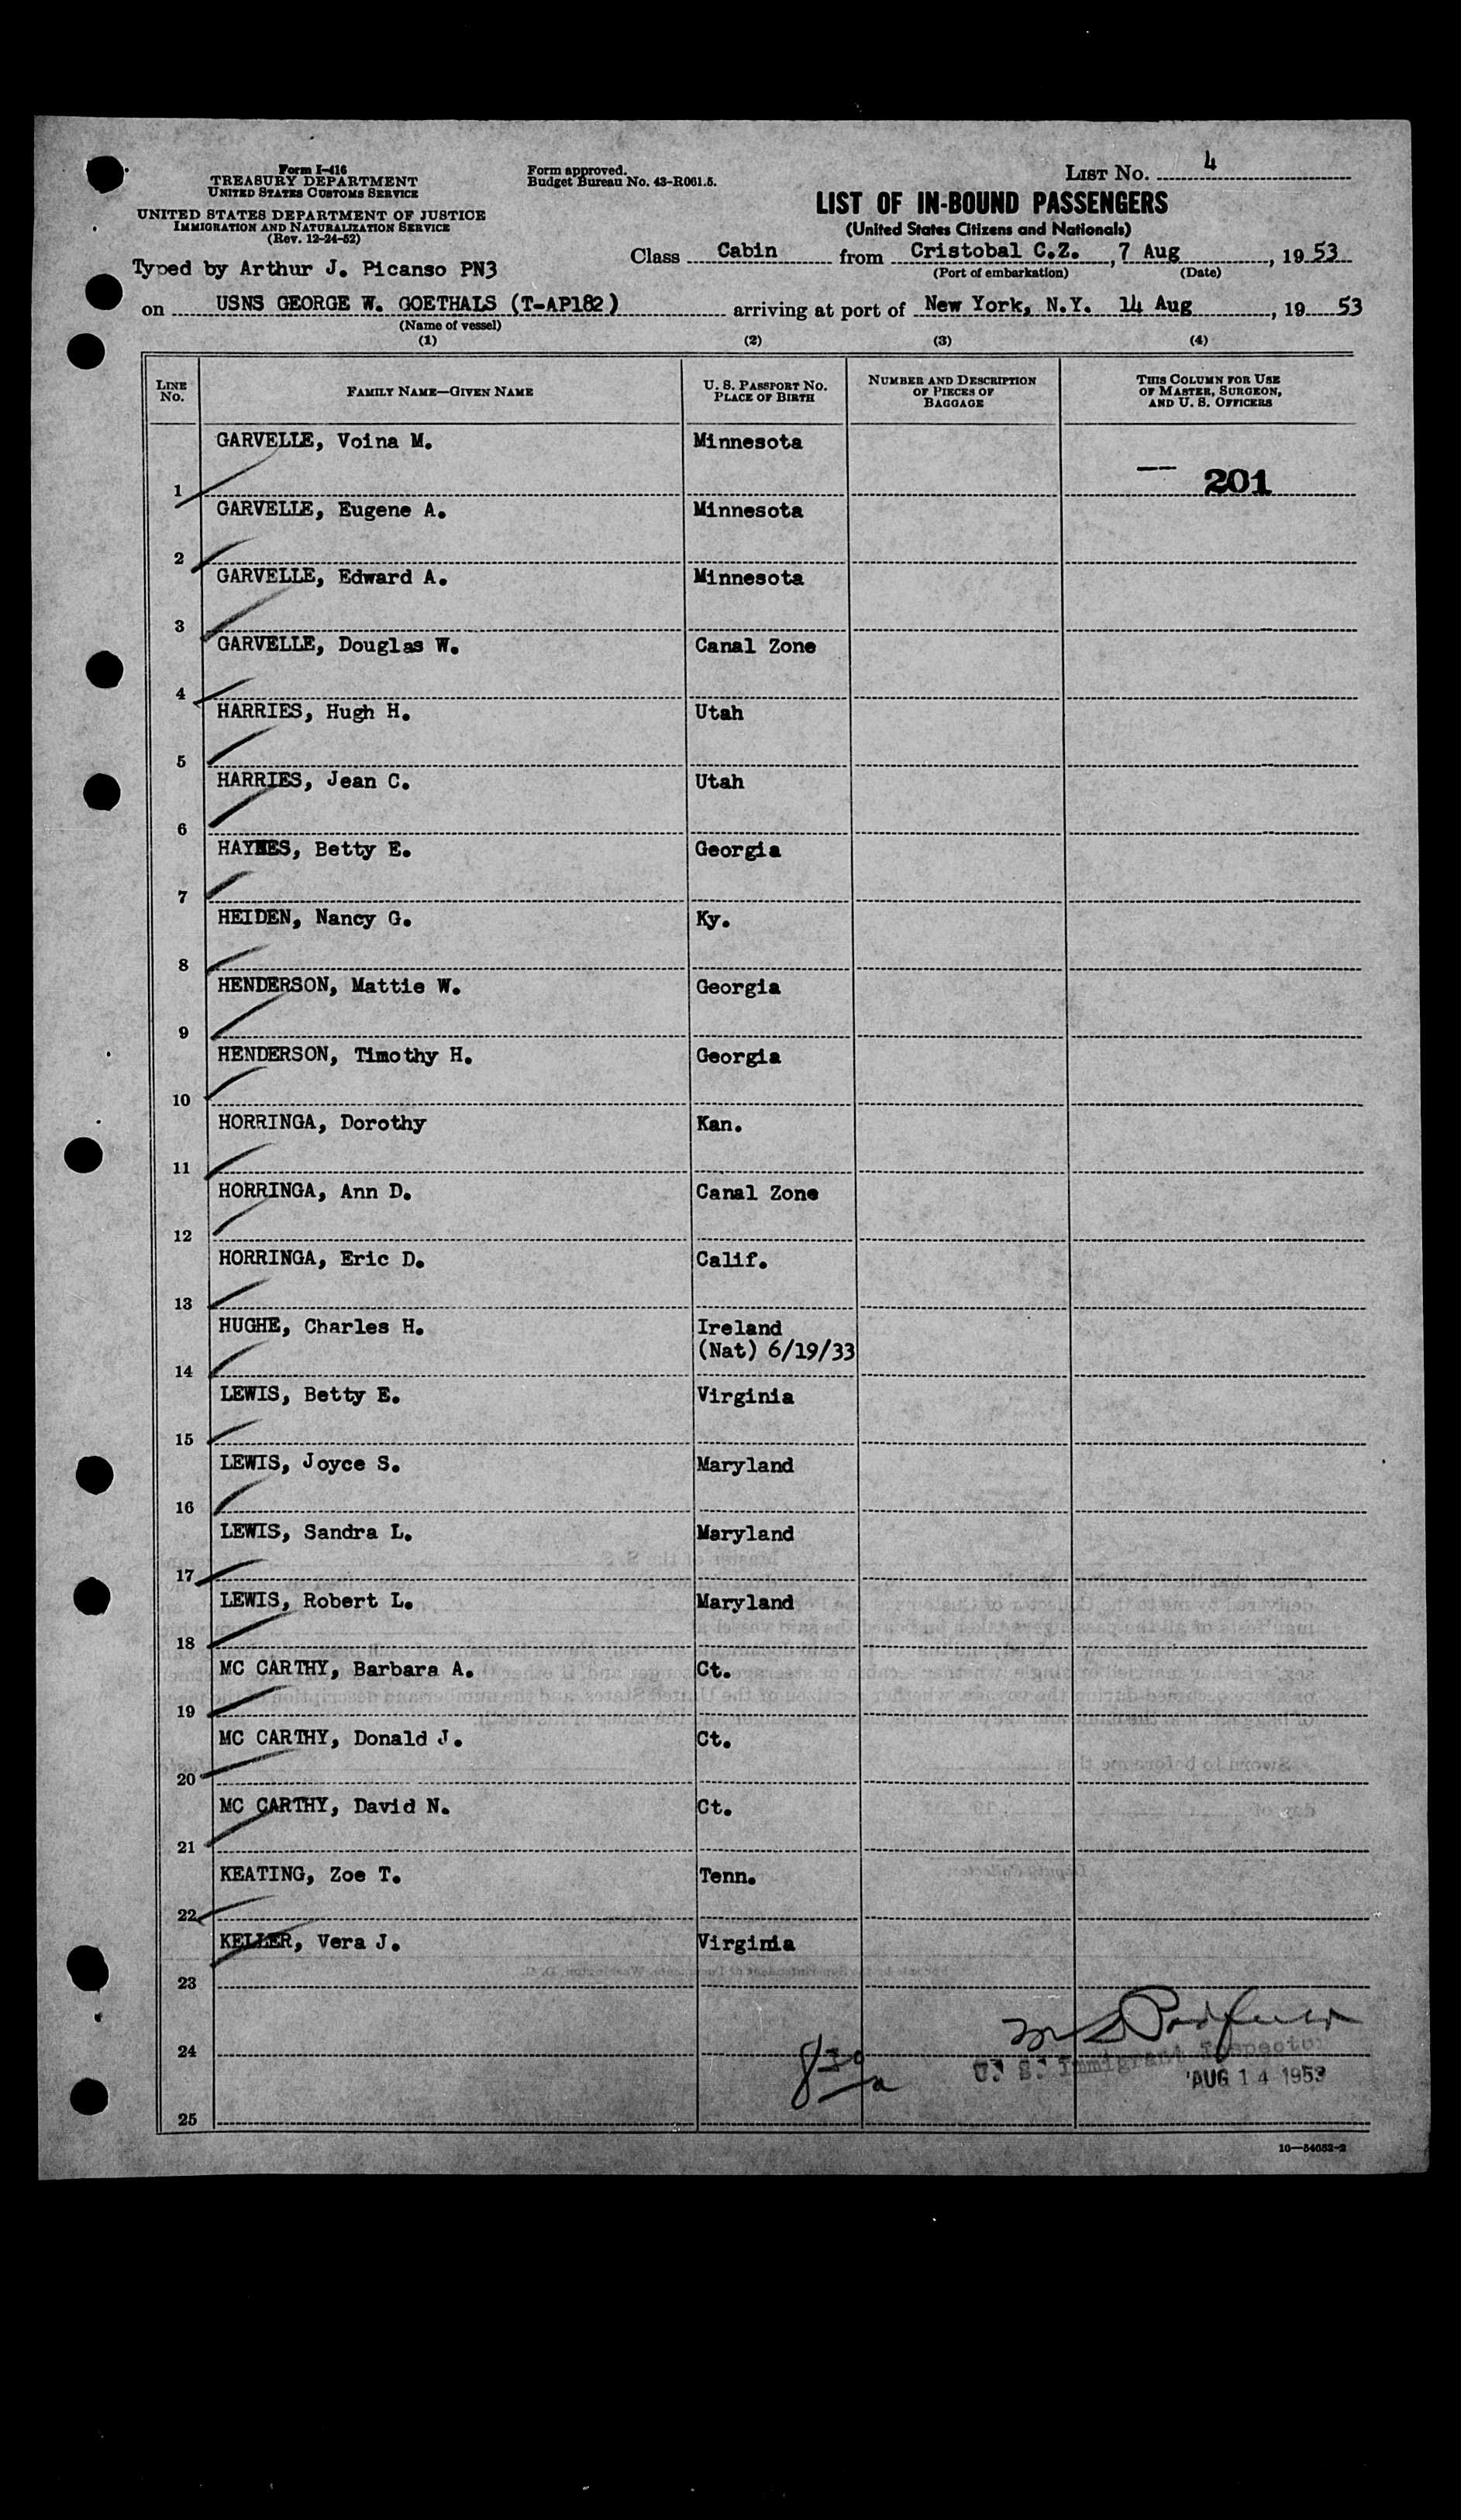 Form I-416
TREASURY DEPARTMENT
UNITED STATES CUSTOMS SERVICE
UNITED STATES DEPARTMENT OF JUSTICE
IMMIGRATION AND NATURALIZATION SERVICE
(Rev. 12-24-52)
Typed by Arthur J. Picanso PN3
Form approved.
Budget Bureau No. 43-R061.5.
LIST No. 4
LIST OF IN-BOUND PASSENGERS
(United States Citizens and Nationals)
Class Cabin from Cristobal C.Z., 7 Aug, 1953
(Port of embarkation) (Date)
on USNS GEORGE W. GOETHALS (T-AP182) arriving at port of New York, N.Y. 14 Aug, 19 53
(Name of vessel)
(1) (2) (3) (4)
LINE No. FAMILY NAME—GIVEN NAME U. S. PASSPORT NO. PLACE OF BIRTH NUMBER AND DESCRIPTION OF PIECES OF BAGGAGE THIS COLUMN FOR USE OF MASTER, SURGEON, AND U. S. OFFICERS
1 GARVELLE, Voina M. Minnesota — 201
2 GARVELLE, Eugene A. Minnesota
3 GARVELLE, Edward A. Minnesota
4 GARVELLE, Douglas W. Canal Zone
5 HARRIES, Hugh H. Utah
6 HARRIES, Jean C. Utah
7 HAYNES, Betty E. Georgia
8 HEIDEN, Nancy G. Ky.
9 HENDERSON, Mattie W. Georgia
10 HENDERSON, Timothy H. Georgia
11 HORRINGA, Dorothy Kan.
12 HORRINGA, Ann D. Canal Zone
13 HORRINGA, Eric D. Calif.
14 HUGHE, Charles H. Ireland
(Nat) 6/19/33
15 LEWIS, Betty E. Virginia
16 LEWIS, Joyce S. Maryland
17 LEWIS, Sandra L. Maryland
18 LEWIS, Robert L. Maryland
19 MC CARTHY, Barbara A. Ct.
20 MC CARTHY, Donald J. Ct.
21 MC CARTHY, David N. Ct.
22 KEATING, Zoe T. Tenn.
23 KELLER, Vera J. Virginia
24
8 30 a
U. S. Immigrant Inspector
AUG 14 1953
25
10—54052-2